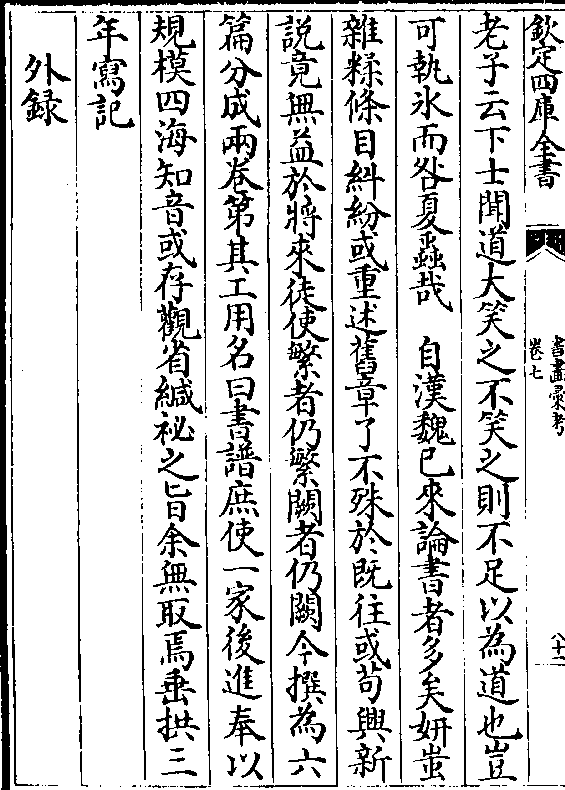 欽定四庫全書
書畫彚考
卷七
八十二
老子云下士聞道大笑之不笑之則不足以為道也豈
可執氷而咎夏蟲哉　自漢魏已來論書者多矣妍蚩
雜糅條目糾紛或重述舊章了不殊於既往或苟興新
說竟無益於將來徒使繁者仍繁闕者仍闕今撰為六
篇分成兩卷第其工用名曰書譜庶使一家後進奉以
規模四海知音或存觀省緘祕之旨余無取焉垂拱三
年寫記
外録